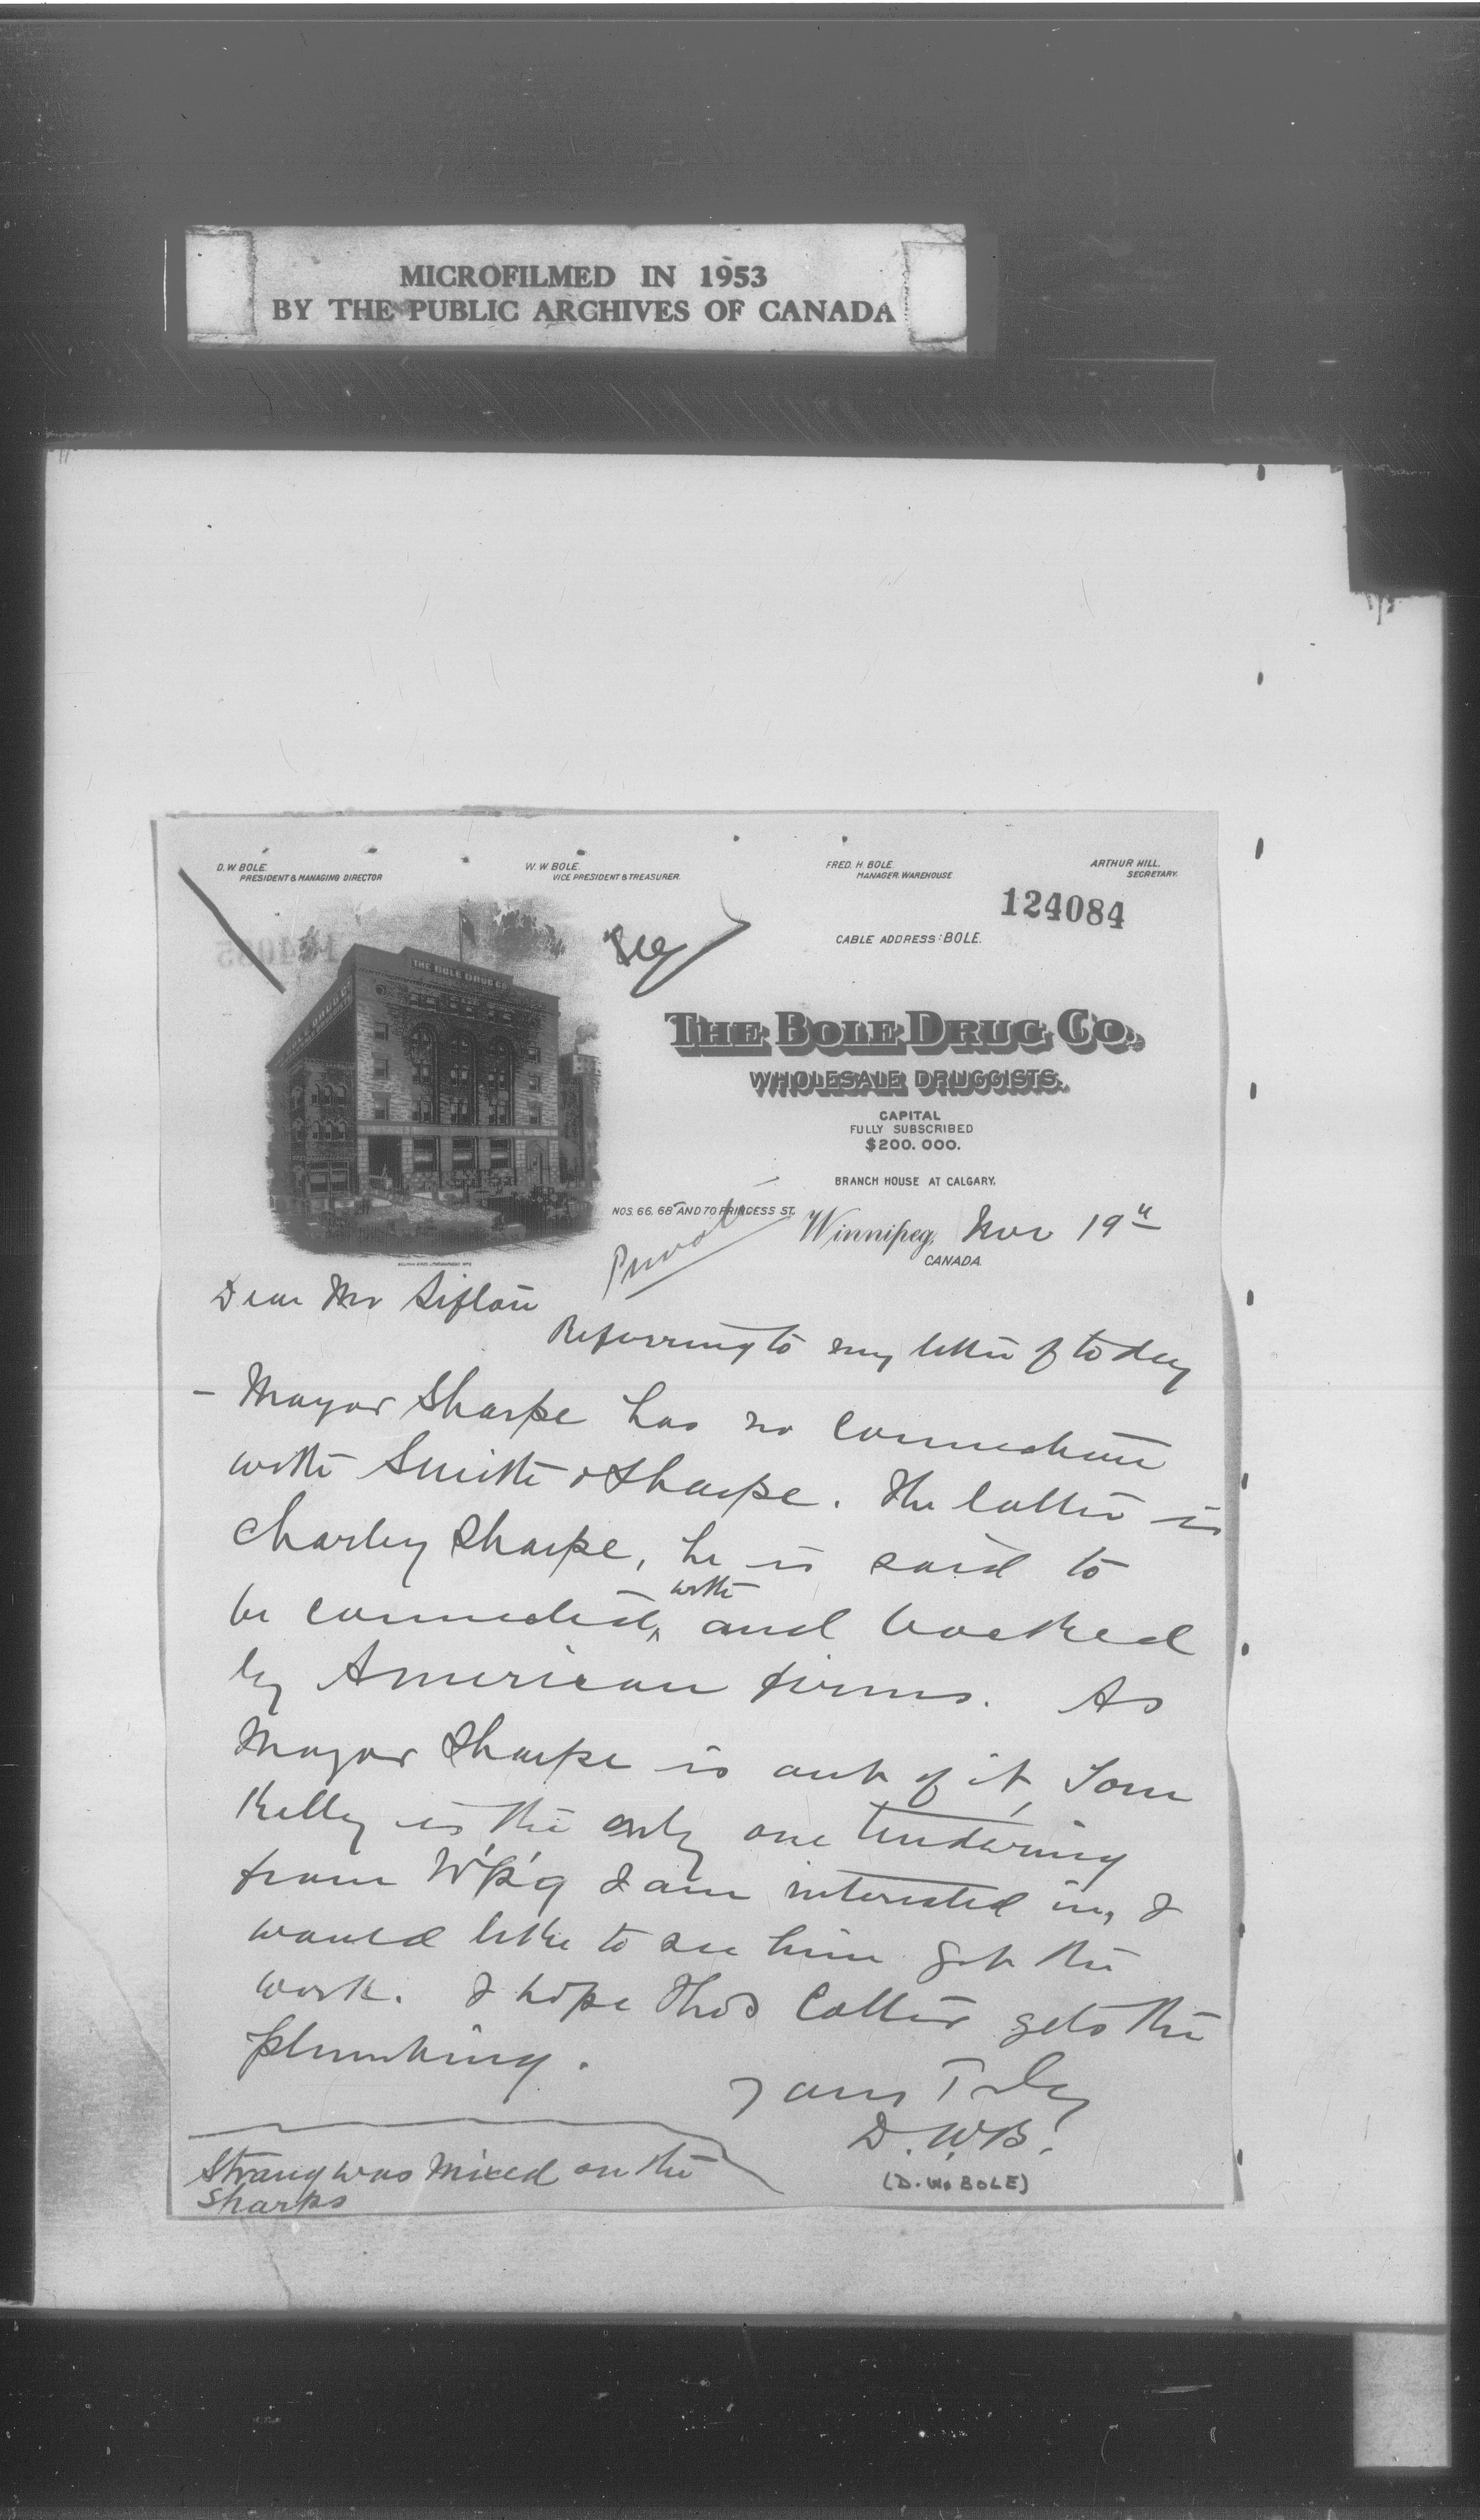 MICROFILMED IN 1953
BY THE PUBLIC ARCHIVES OF CANADA
D. W. BOLE.
PRESIDENT & MANAGING DIRECTOR
W. W. BOLE.
VICE PRESIDENT & TREASURER.
FRED. H. BOLE.
MANAGER. WAREHOUSE
ARTHUR HILL.
SECRETARY.
124084
CABLE ADDRESS: BOLE.
THE BOLE DRUG CO.
THE BOLE DRUG CO.,
WHOLESALE DRUGGISTS.
CAPITAL
FULLY SUBSCRIBED
$200.000.
BRANCH HOUSE AT CALGARY.
NOS. 66, 68 AND 70 PRINCESS ST.
Winnipeg, Nov 19th
CANADA.
Private
Dear Mr Sifton
Referring to my letter of to day
- Mayor Sharpe has no connection
with Smith & Sharpe. The latter is
Charley Sharpe, he is said to
be connected with and backed
by American firms. As
Mayor Sharpe is out of it, Tom
Kelly is the only one tendering
from W'p'g I am interested in, I
would like to see him get the
work. I hope Thos Cotter gets the
plumbing.
Yours Truly
D.W.B.
(D. W. BOLE)
Strang was mixed on the
Sharps